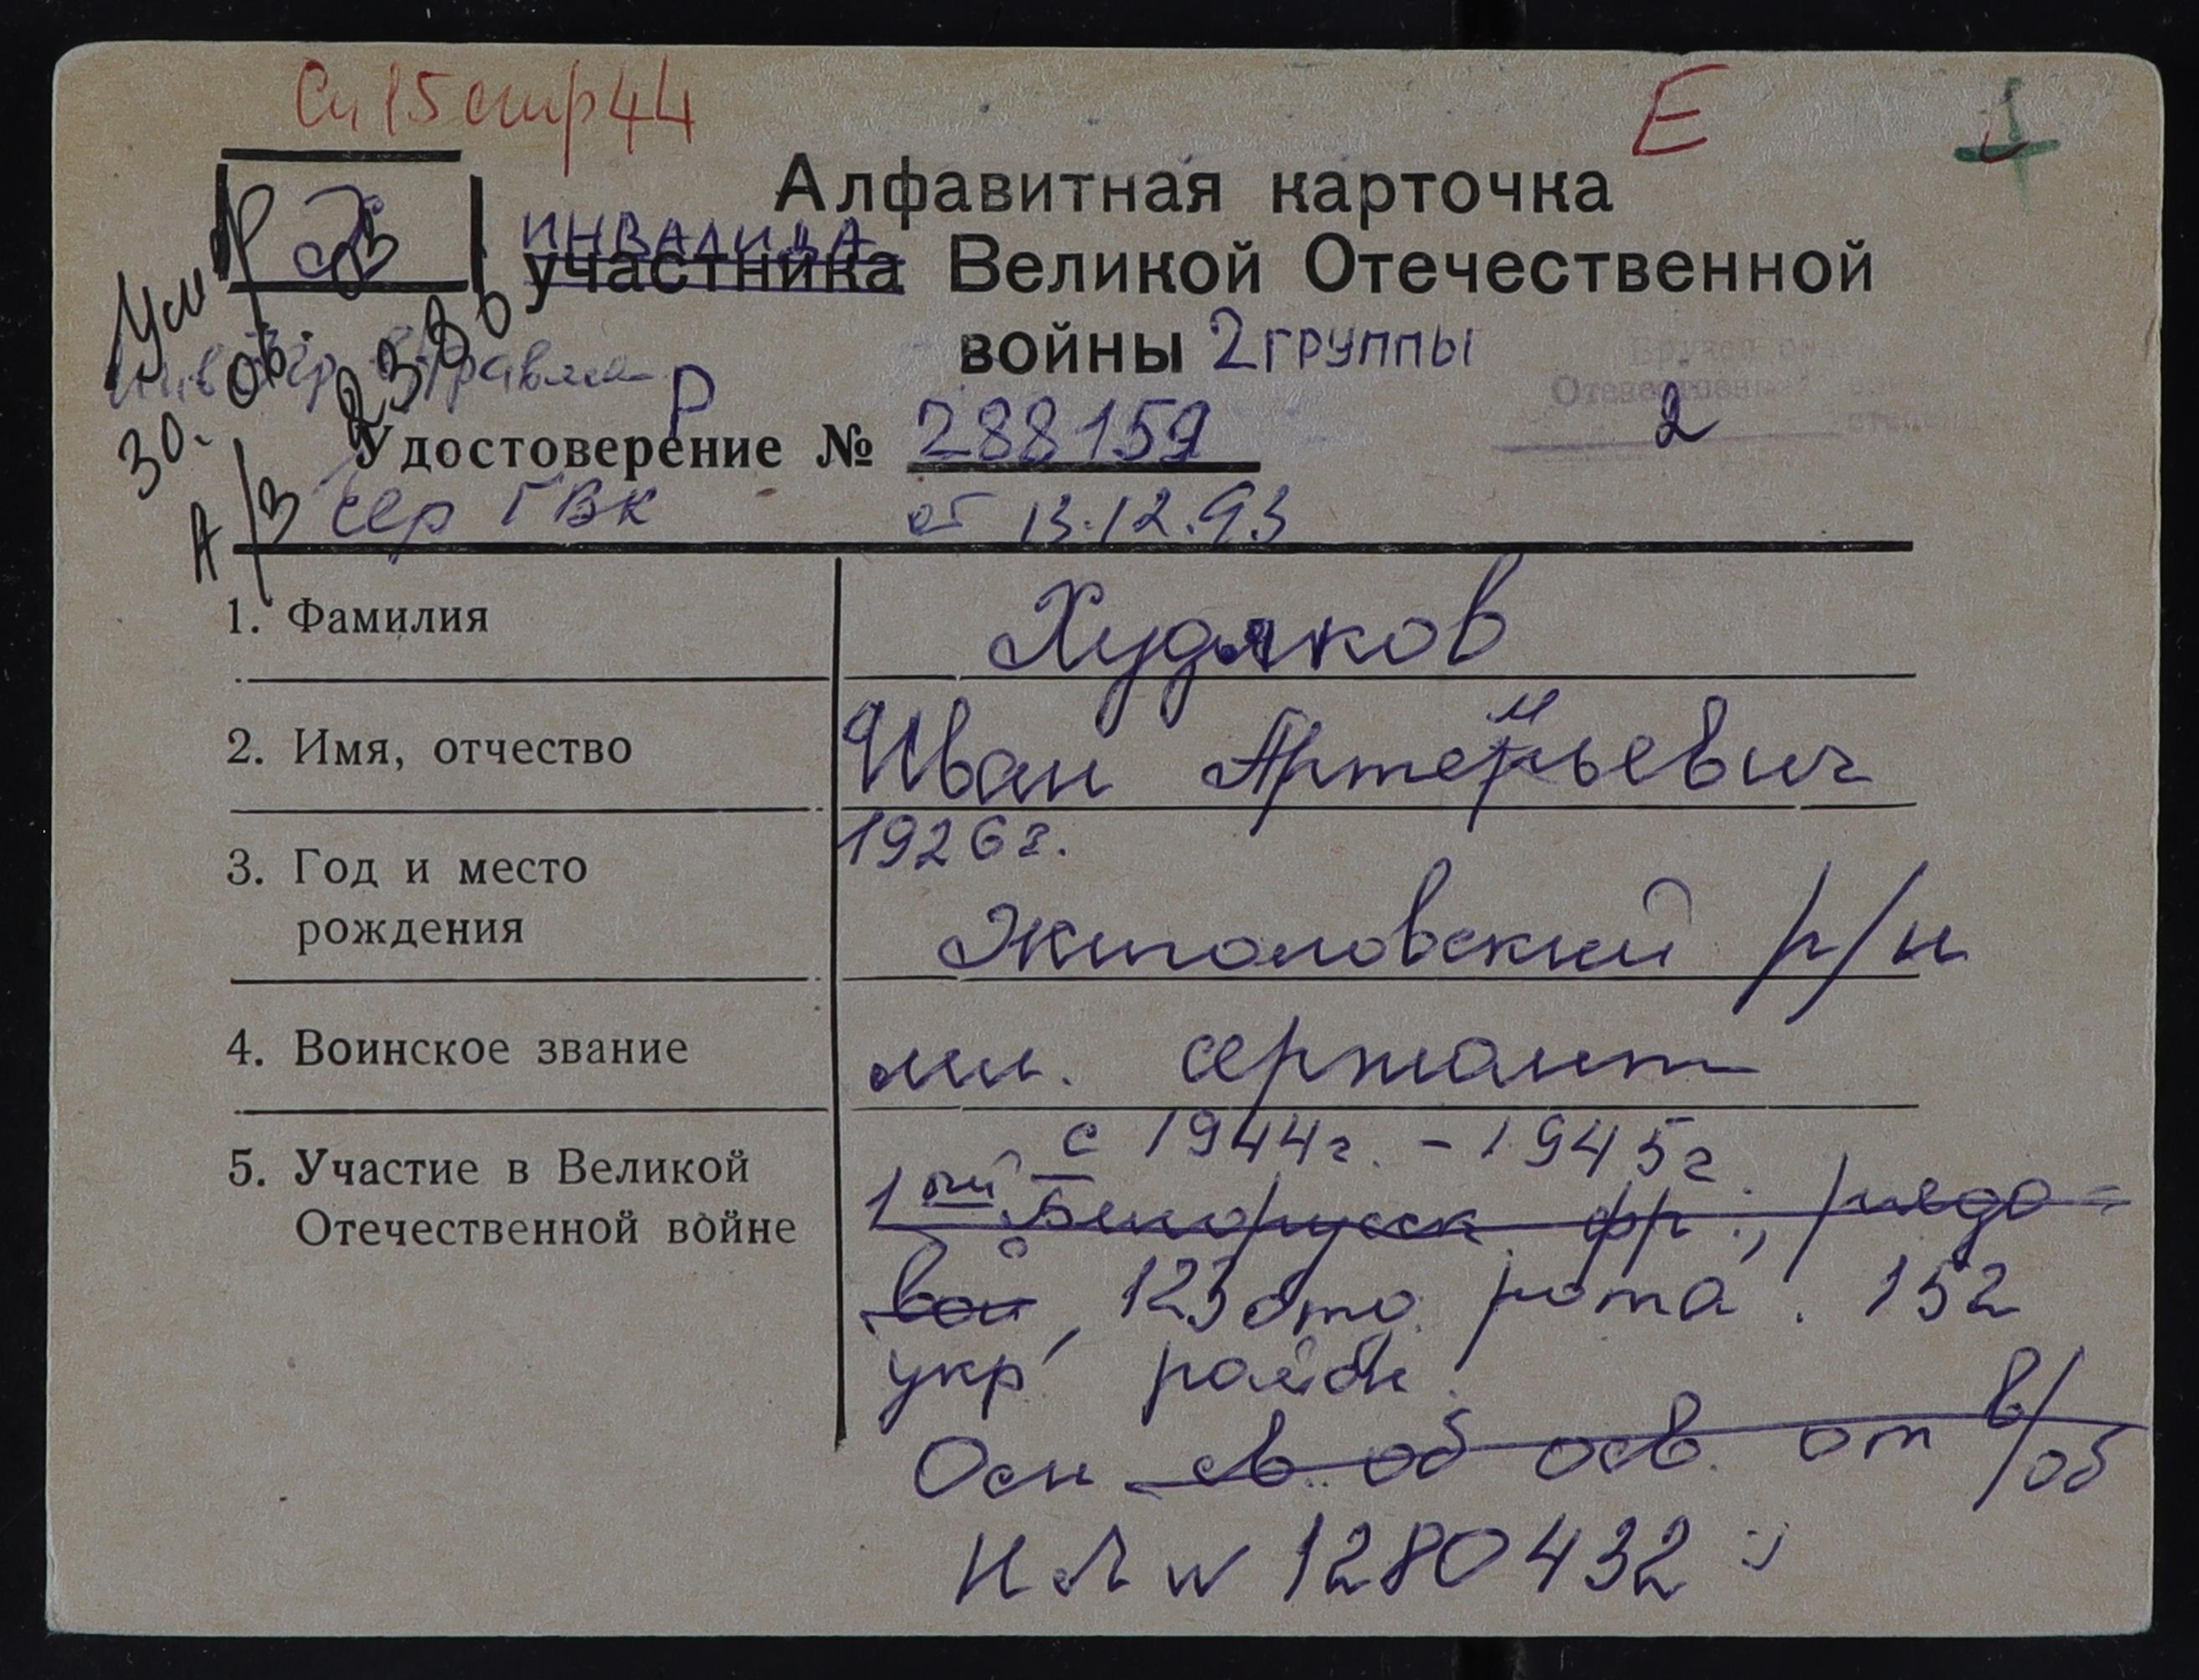 Сп 15 стр 44
Е
Х
Алфавитная карточка
ИНВАЛИДА
участника Великой Отечественной
войны 2 группы
Ум
30. 06.
А/З
Р
2
Удостоверение № 288159
сер ГВК от 13.12.93
1. Фамилия Худяков
2. Имя, отчество Иван Артемьевич
3. Год и место 1926г.
рождения р/н
4. Воинское звание мл. сержант
5. Участие в Великой с 1944г. - 1945г.
Отечественной войне 1ый Белорусск фр., рядо-
вой, 123 рота. 152
укр. район
Осн св. об осв. от в/об
НЛ № 1280432